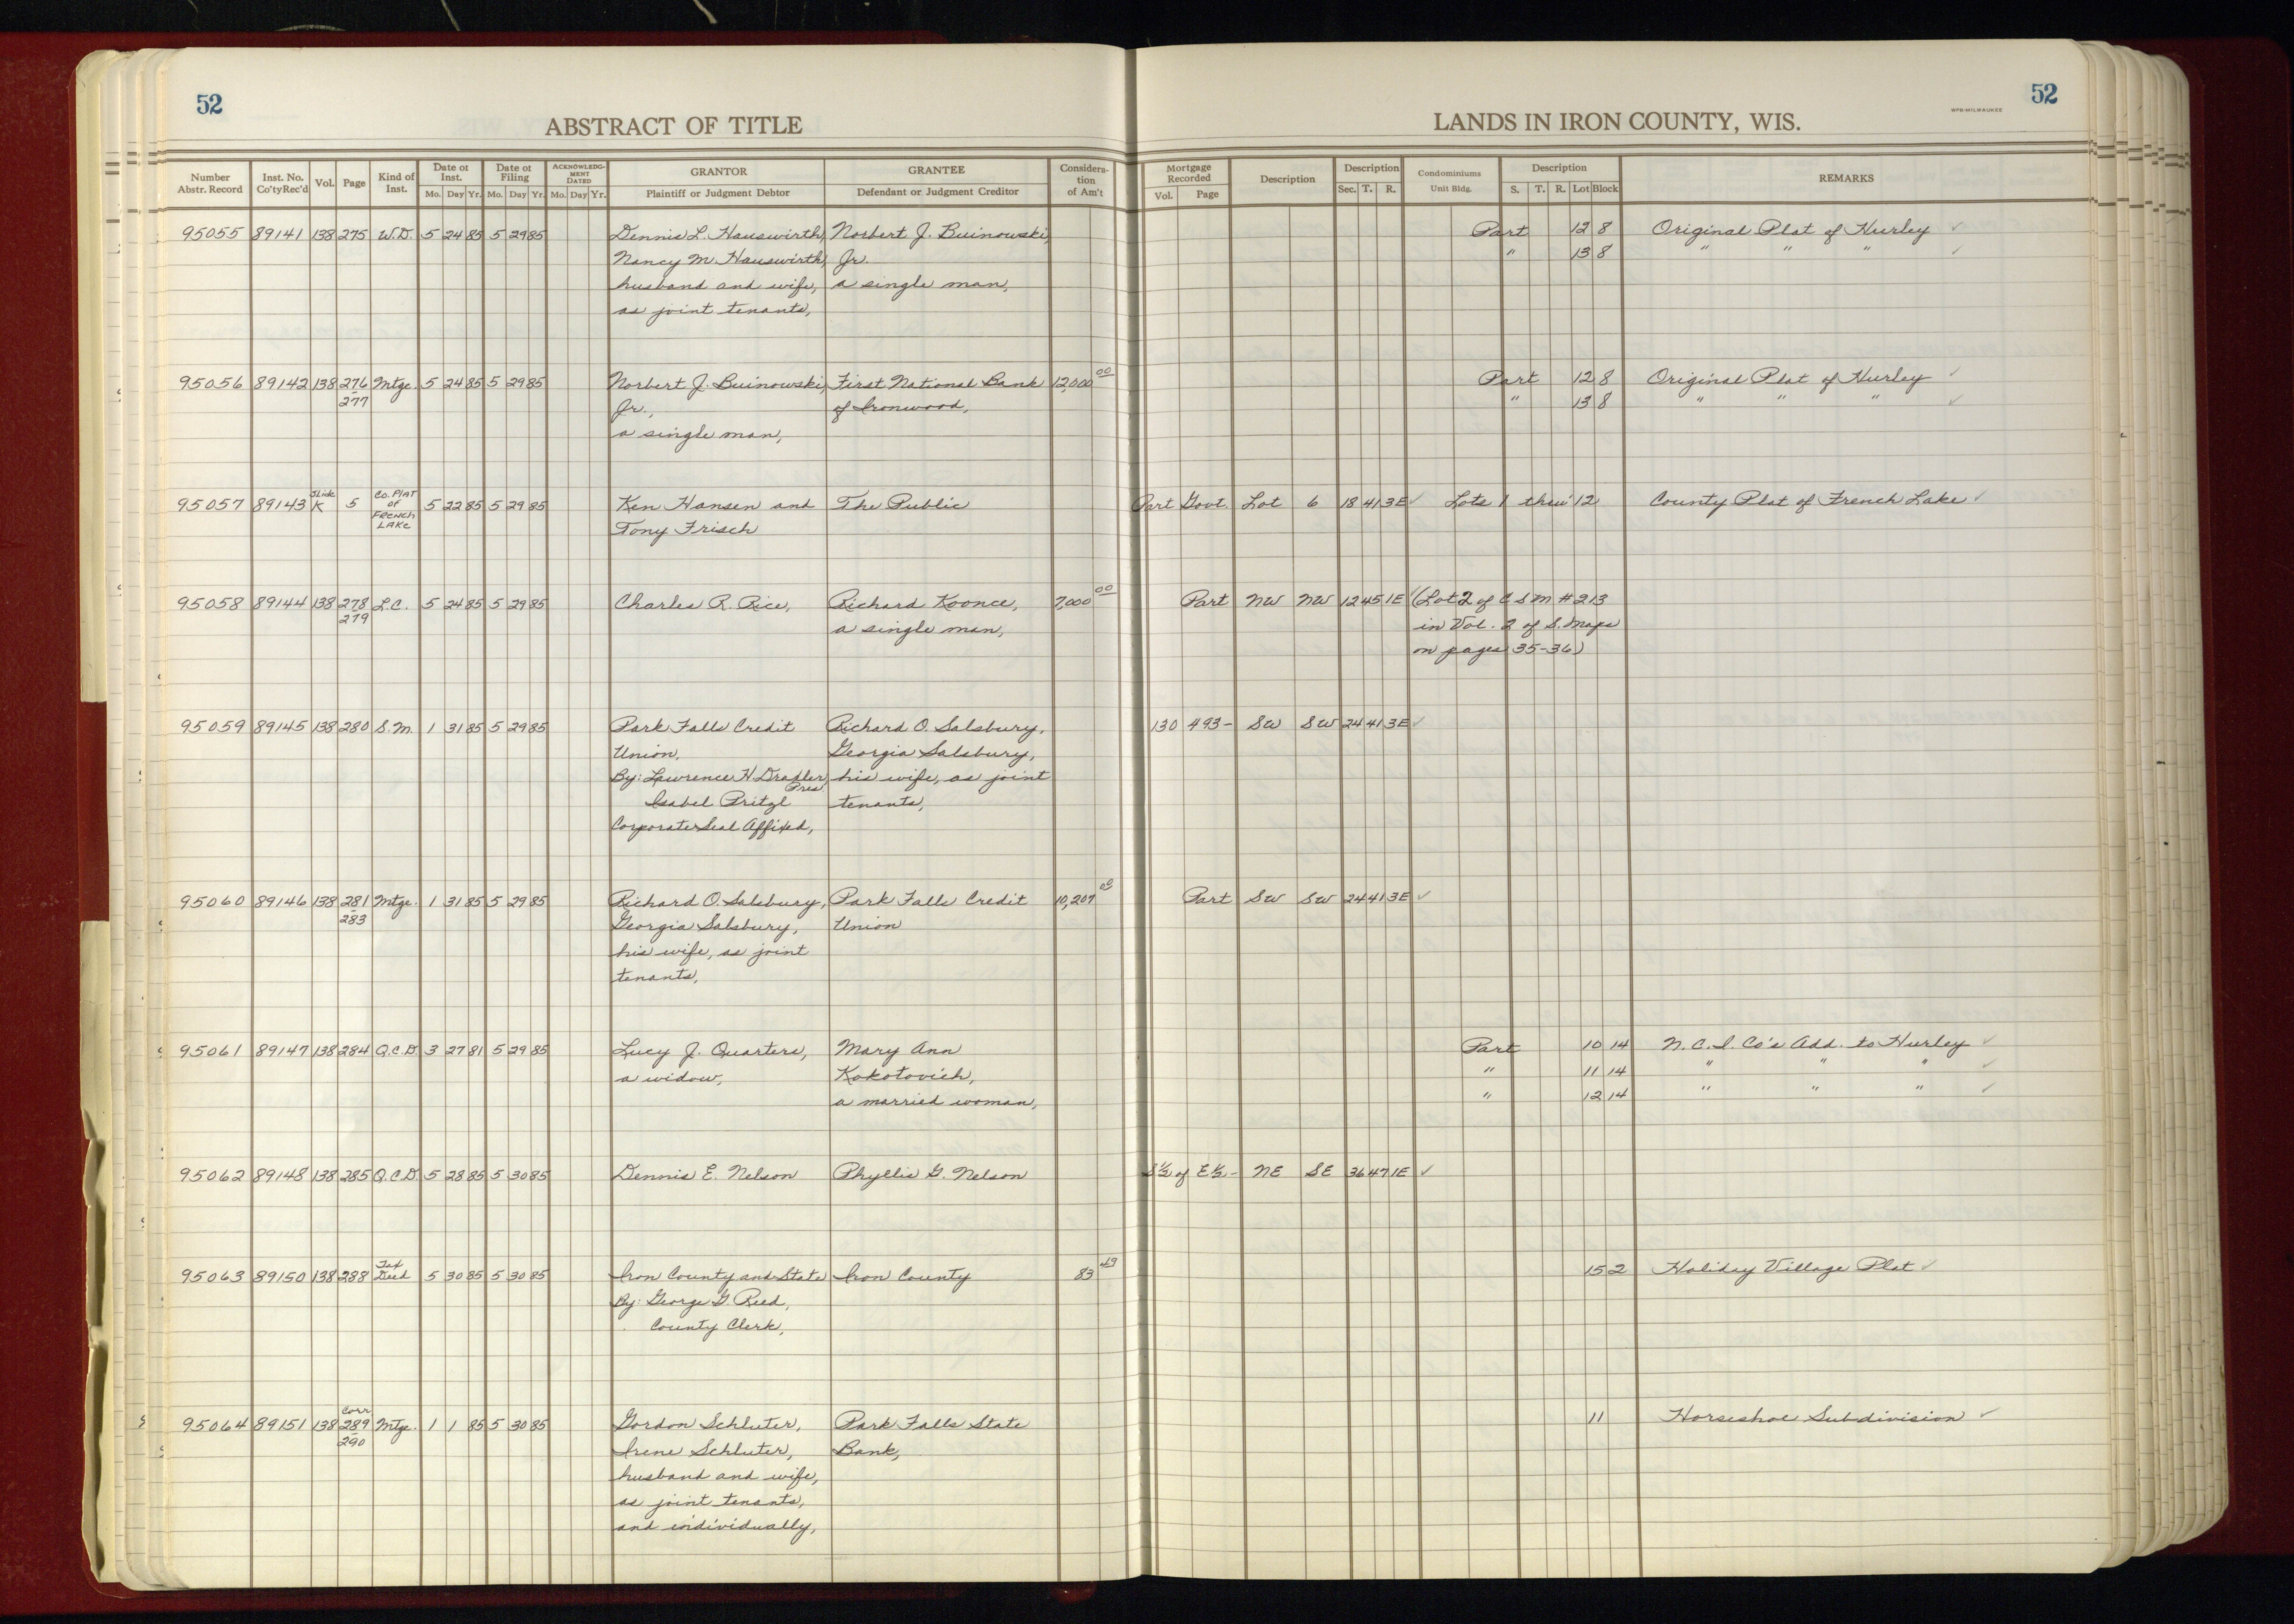 52
ABSTRACT OF TITLE
Number Abstr. Record | Inst. No. Co'ty Rec'd | Vol. | Page | Kind of Inst. | Date of Inst. Mo. Day Yr. | Date of Filing Mo. Day Yr. | ACKNOWLEDGMENT DATED Mo. Day Yr. | GRANTOR Plaintiff or Judgment Debtor | GRANTEE Defendant or Judgment Creditor | Consideration of Am't
95055 89141 138 275 W.D. 5 24 85 5 29 85 Dennis L. Hauswirth, Norbert J. Buinowski,
Nancy M. Hauswirth, Jr.
husband and wife, a single man,
as joint tenants,
95056 89142 138 276 Mtge. 5 24 85 5 29 85 Norbert J. Buinowski, First National Bank 12,000 00
-277 Jr., of Ironwood,
a single man,
95057 89143 Slide K 5 CO. PLAT of FRENCH LAKE 5 22 85 5 29 85 Ken Hansen and The Public
Tony Frisch
95058 89144 138 278 L.C. 5 24 85 5 29 85 Charles R. Rice, Richard Koonce, 7,000 00
-279 a single man,
95059 89145 138 280 S.M. 1 31 85 5 29 85 Park Falls Credit Richard O. Salsbury,
Union, Georgia Salsbury,
By: Lawrence H. Draxler, Pres. his wife, as joint
Isabel Pritzl tenants,
Corporate Seal Affixed,
95060 89146 138 281 Mtge. 1 31 85 5 29 85 Richard O. Salsbury, Park Falls Credit 10,207
-283 Georgia Salsbury, Union
his wife, as joint
tenants,
95061 89147 138 284 Q.C.D. 3 27 81 5 29 85 Lucy J. Quarters, Mary Ann
a widow, Kokotovich,
a married woman,
95062 89148 138 285 Q.C.D. 5 28 85 5 30 85 Dennis E. Nelson Phyllis G. Nelson
95063 89150 138 288 Tax Deed 5 30 85 5 30 85 Iron County and State Iron County 83 49
By: George G. Reed,
County Clerk,
95064 89151 138 Corr 289 Mtge. 1 1 85 5 30 85 Gordon Schluter, Park Falls State
-290 Irene Schluter, Bank,
husband and wife,
as joint tenants,
and individually,
52
WPB-MILWAUKEE
LANDS IN IRON COUNTY, WIS.
Mortgage Recorded Vol. Page | Description | Description Sec. T. R. | Condominiums Unit Bldg. | Description S. T. R. Lot Block | REMARKS
Part 12 8 Original Plat of Hurley ✓
" 13 8 " " " ✓
Part 12 8 Original Plat of Hurley ✓
" 13 8 " " " ✓
Part Govt. Lot 6 18 41 3E ✓ Lots 1 thru 12 County Plat of French Lake ✓
Part NW NW 12 45 1E ✓ (Lot 2 of C S M # 213
in Vol. 2 of S. Maps
on pages 35-36)
130 493 - SW SW 24 41 3E ✓
Part SW SW 24 41 3E ✓
Part 10 14 N.C.I. Co's Add. to Hurley ✓
" 11 14 " " " ✓
" 12 14 " " " ✓
S½ of E½ - NE SE 36 47 1E ✓
15 2 Holiday Village Plat ✓
11 Horseshoe Subdivision ✓